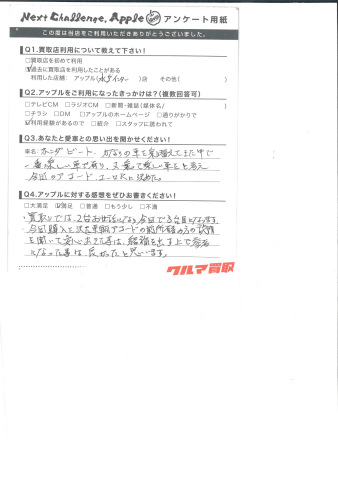 Next Challenge, Apple アンケート用紙
この度は当店をご利用いただきありがとうございました。
Q1.買取店利用について教えて下さい！
□買取店を初めて利用
☑過去に買取店を利用したことがある
利用した店舗: アップル(水戸インター)店 その他( )
Q2.アップルをご利用になったきっかけは？(複数回答可)
□テレビCM □ラジオCM □新聞・雑誌(媒体名/ )
□チラシ □DM □アップルのホームページ □通りがかりで
☑利用経験があるので □紹介 □スタッフに誘われて
Q3.あなたと愛車との思い出を聞かせください！
車名: ホンダ ビート、かなりの車を乗り替えてきた中で
一番楽しい車であり、又乗って楽しい車をと考え
今回のアコード ユーロRに決めた。
Q4.アップルに対する感想をぜひお書きください！
□大満足 ☑満足 □普通 □もう少し □不満
・買取りでは、2台お世話になり今回で3台目となります。
・今回購入を決めた車輌アコードの前所有の方の説明
を聞いて安心出来た事は、結論を出す上で参考
になった事は良かったと思います。
クルマ買取